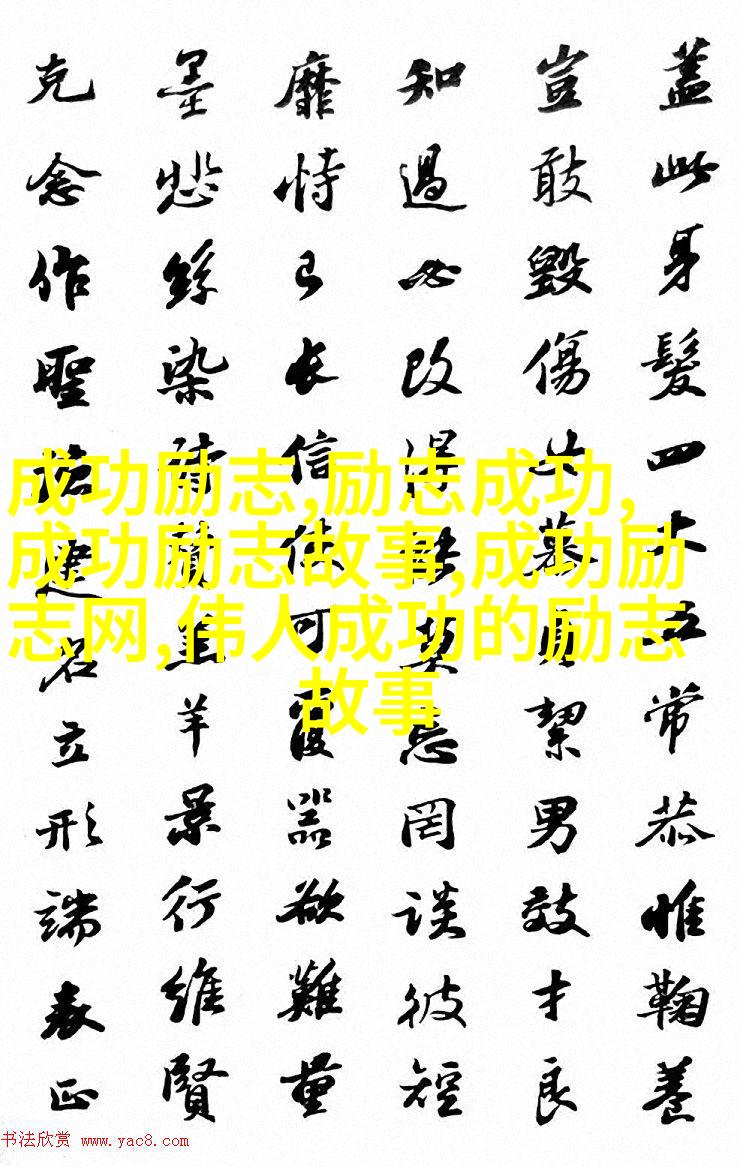 蓋此身髮四大五常恭惟鞠養
豈敢毀傷女慕貞絜男效才良
知過必改得能莫忘罔談彼短
靡恃己長信使可覆器欲難量
墨悲絲染詩讚羔羊景行維賢
克念作聖德建名立形端表正
成功励志,励志成功,
成功励志故事,成功励
志网,伟人成功的励志
故事
书法欣赏 www.yac8.com